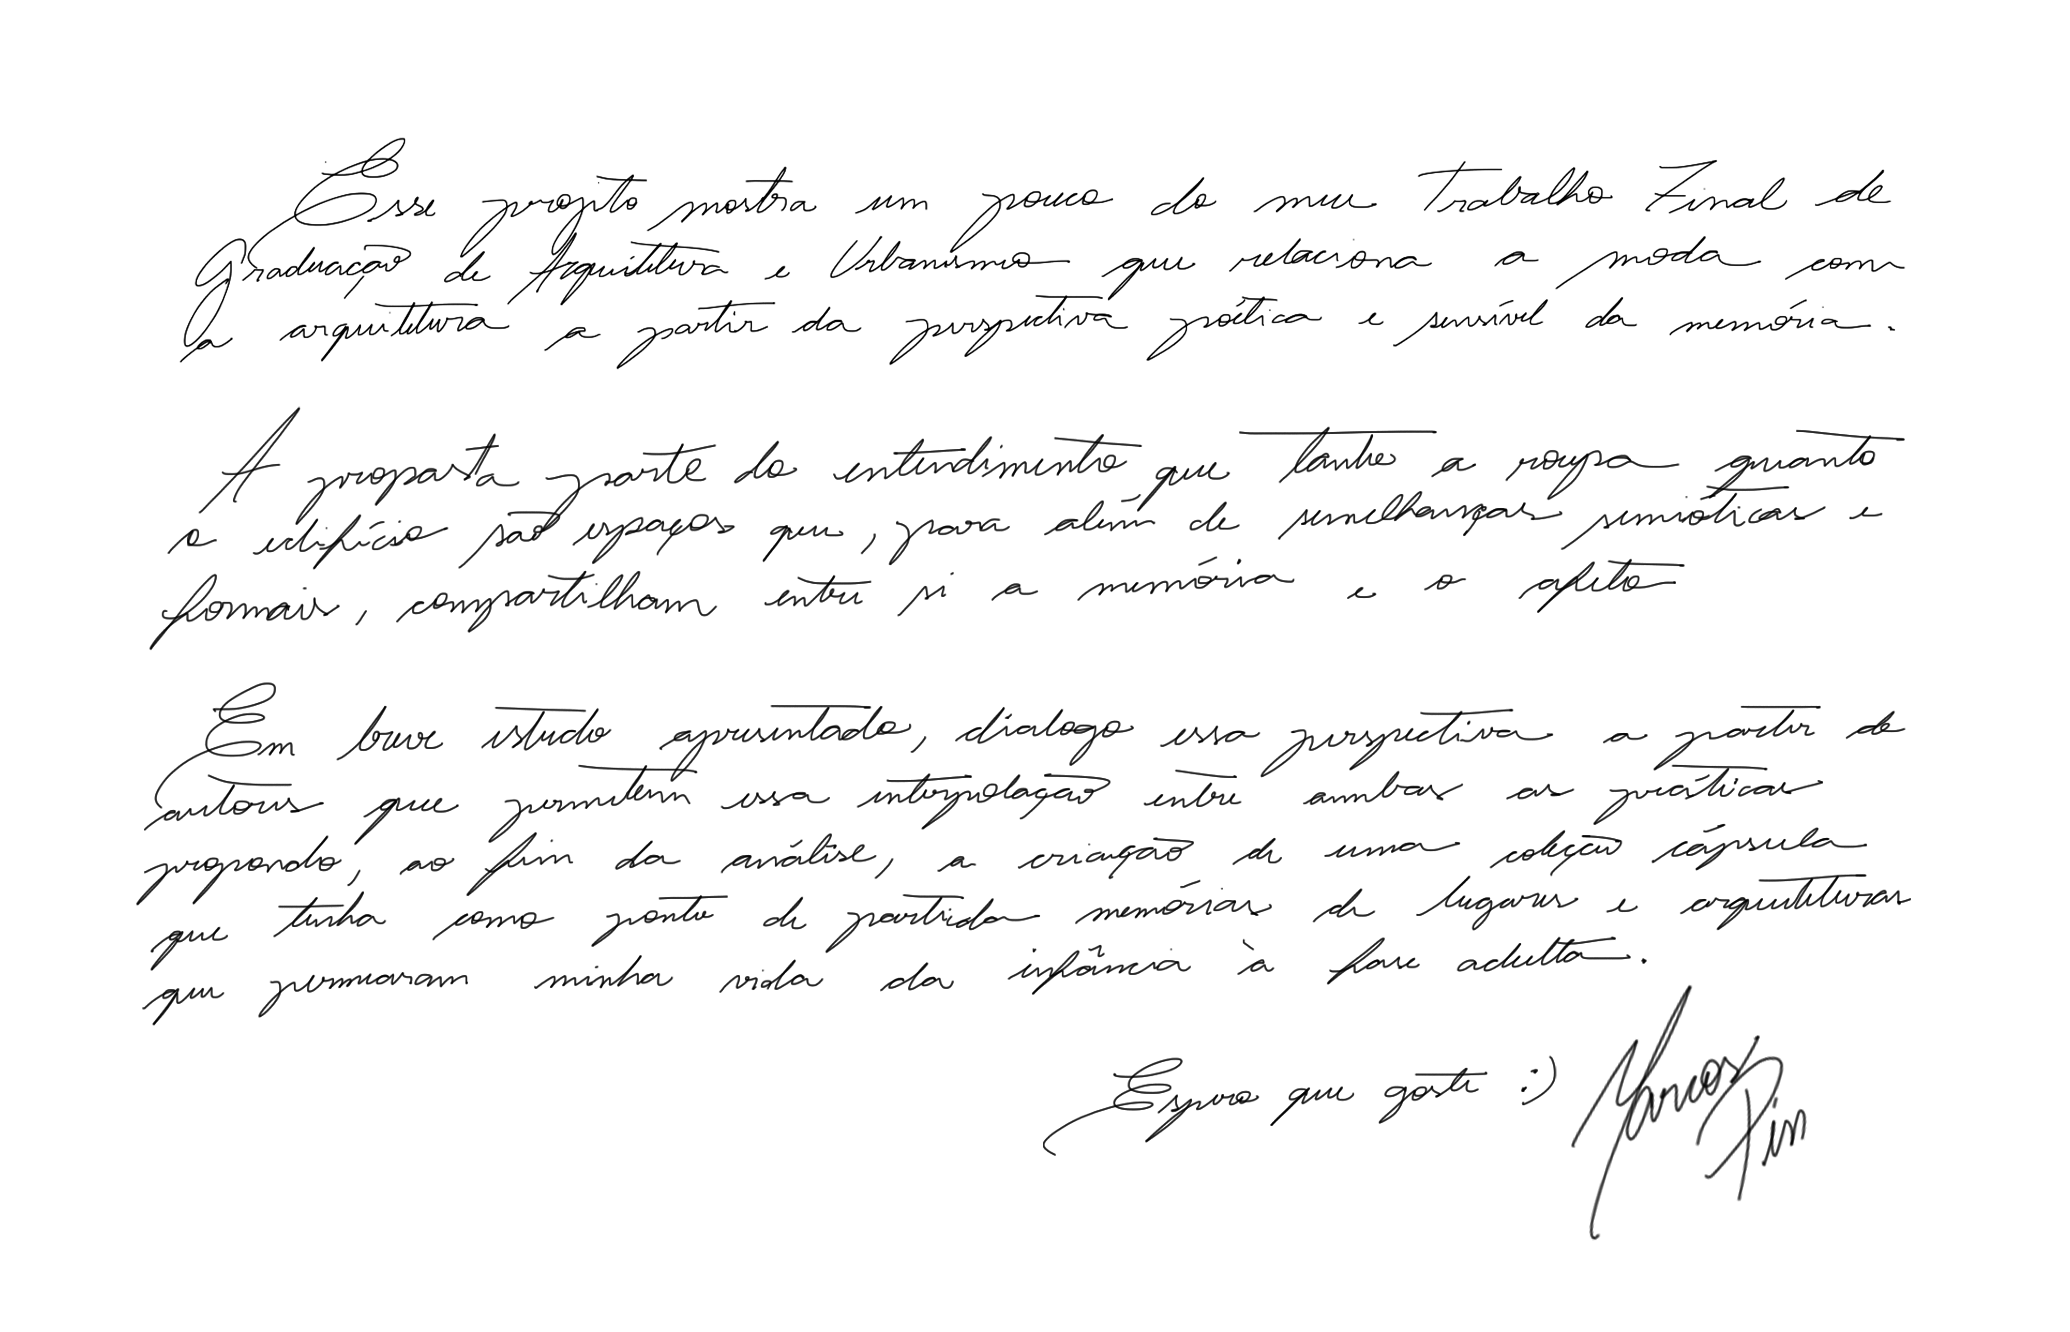 Esse projeto mostra um pouco do meu Trabalho Final de
Graduação de Arquitetura e Urbanismo que relaciona a moda com
a arquitetura a partir da perspectiva poética e sensível da memória.
A proposta parte do entendimento que tanto a roupa quanto
o edifício são espaços que, para além de semelhanças semióticas e
formais, compartilham entre si a memória e o afeto
Em breve estudo apresentado, dialogo essa perspectiva a partir de
autores que permitem essa interpolação entre ambas as práticas
propondo, ao fim da análise, a criação de uma coleção cápsula
que tenha como ponto de partida memórias de lugares e arquiteturas
que permearam minha vida da infância à fase adulta.
Espero que goste :)
Marcos
Pin